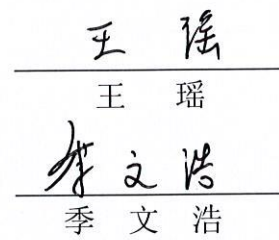 王 瑶
王 瑶
季文浩
季 文 浩